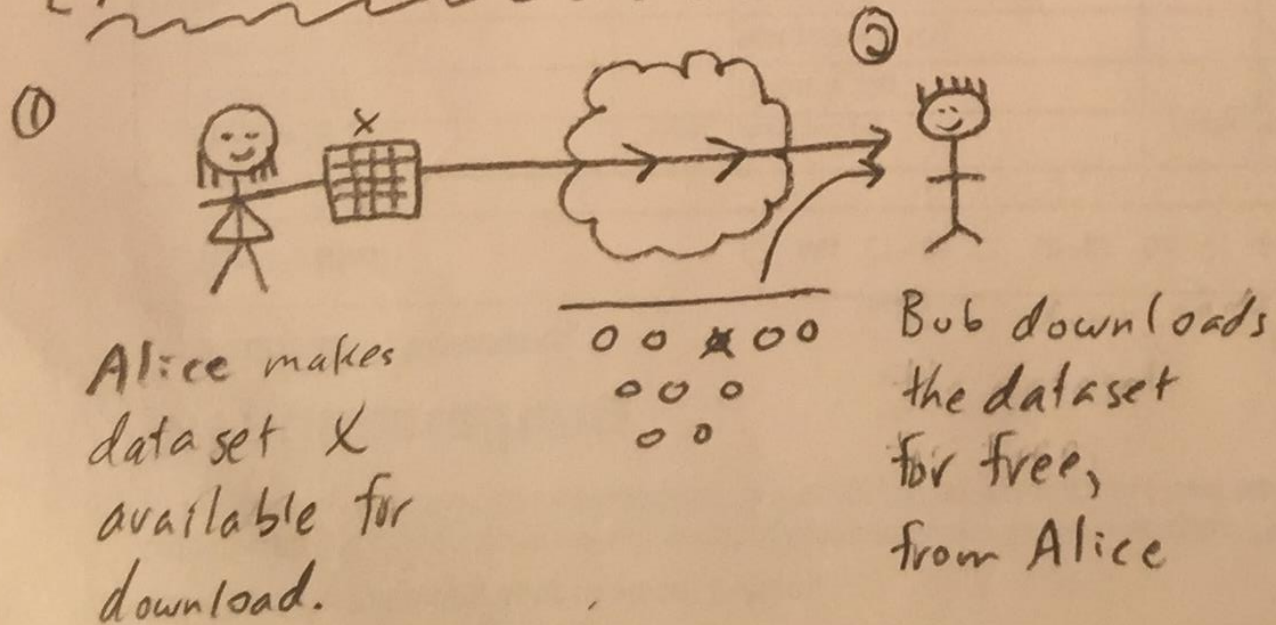 ①
②
X
Alice makes
dataset X
available for
download.
Bob downloads
the dataset
for free,
from Alice